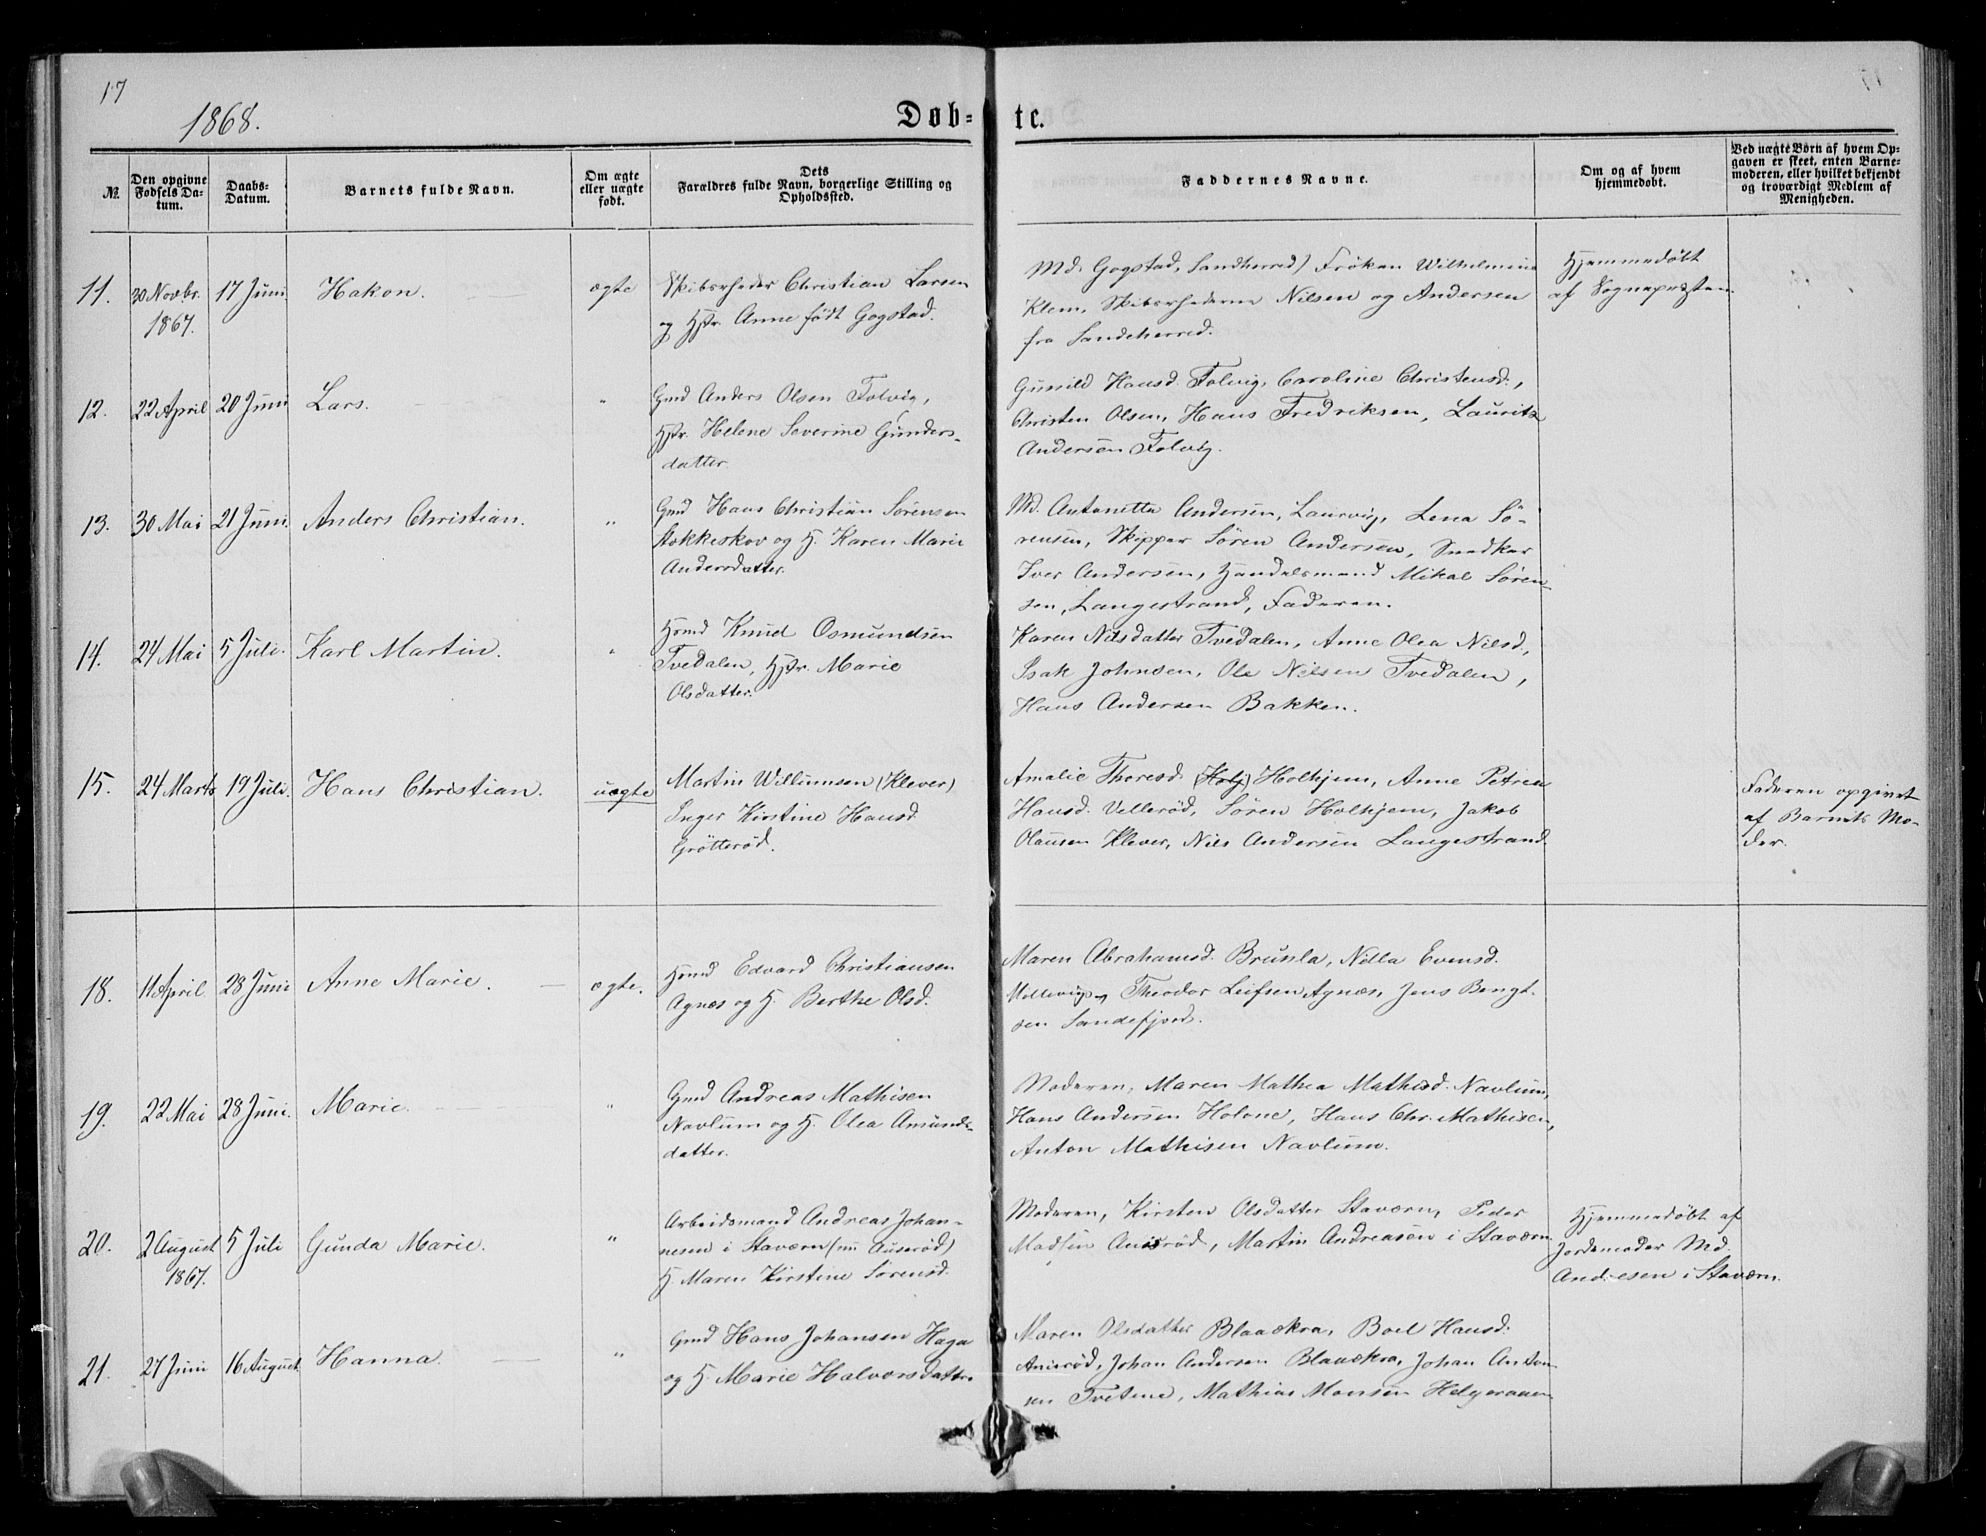 17
1868.
Døb-
te.
№.
Den opgivne
Fødsels Da-
tum.
Daabs-
Datum.
Barnets fulde Navn.
Om ægte
eller uægte
født.
Dets
Forældres fulde Navn, borgerlige Stilling og
Opholdssted.
Faddernes Navne.
Om og af hvem
hjemmedøbt.
Ved uægte Børn af hvem Op-
gaven er skeet, enten Barne-
moderen, eller hvilket bekjendt
og troværdigt Medlem af
Menigheden.
11.
30 Novbr.
1867.
17 Juni
Hakon.
ægte
Skibsrheder Christian Larsen
og Hstr. Anne født Gogstad.
Md. Gogstad, Sandherred) Frøken Wilhelmine
Klem, Skibsrhederne Nilsen og Andersen
fra Sandeherred.
Hjemmedøbt
af Sognepræsten.
12.
22 April
20 Juni
Lars.
"
Gmd Anders Olsen Folvig,
Hstr. Helene Severine Gunders-
datter.
Gunild Hansd. Folvig, Caroline Christensd.,
Christen Olsen, Hans Fredriksen, Lauritz
Andersen Folvig.
13.
30 Mai
21 Juni.
Anders Christian.
"
Gmd Hans Christian Sørensen
Stokkeskov og H. Karen Marie
Andersdatter.
Md. Antonette Andersen, Laurvig, Lena Sø-
rensen, Skipper Søren Andersen, Snedker
Iver Andersen, Handelsmand Mikal Søren-
sen, Langestrand, Faderen.
14.
24 Mai
5 Juli.
Karl Martin.
"
Hsmd Knud Osmundsen
Tvedalen, Hstr. Marie
Olsdatter.
Karen Nilsdatter Tvedalen, Anne Olea Nilsd,
Isak Johnsen, Ole Nilsen Tvedalen,
Hans Andersen Bakken.
15.
24 Marts
19 Juli.
Hans Christian.
uægte
Martin Willumsen (Klever)
Inger Kirstine Hansd.
Grøtterød.
Amalie Thoresd. (Holj) Holhjem, Anne Petrea
Hansd. Vellerød, Søren Holhjem, Jakob
Olausen Klever, Nils Andersen Langestrand.
Faderen opgivet
af Barnets Mo-
der.
18.
11 April
28 Juni
Anne Marie.
ægte.
Hsmd Edvard Christiansen
Agnæs og H. Berthe Olsd.
Maren Abrahamsd. Brunla, Nilla Evensd.
Theodor Leifsen Agnæs, Jens Bengt-
sen Sandefjord.
19.
22 Mai
28 Juni.
Marie.
"
Gmd Andreas Mathisen
Navlum og H. Olea Amunds-
datter.
Moderen, Maren Mathea Mathisd. Navlum,
Hans Andersen Holene, Hans Chr. Mathisen,
Anton Mathisen Navlum.
20.
2 August
1867.
5 Juli
Gunda Marie.
"
Arbeidsmand Andreas Johan-
nesen i Staværn (nu Auserød)
H. Maren Kirstine Sørensd.
Moderen, Kirsten Olsdatter Staværn, Peder
Madsen Anisrød, Martin Andreasen i Staværn
Hjemmedøbt af
Jordemoder Md.
Andresen i Staværn.
21.
27 Juni
16 August
Hanna.
"
Gmd Hans Johansen Haga
og H. Marie Halvorsdatter
Maren Olsdatter Blaaekra, Boel Hansd.
Anisrød, Johan Andersen Blaaekra, Johan Anton-
sen Tvetene, Mathias Monsen Helgeraaen